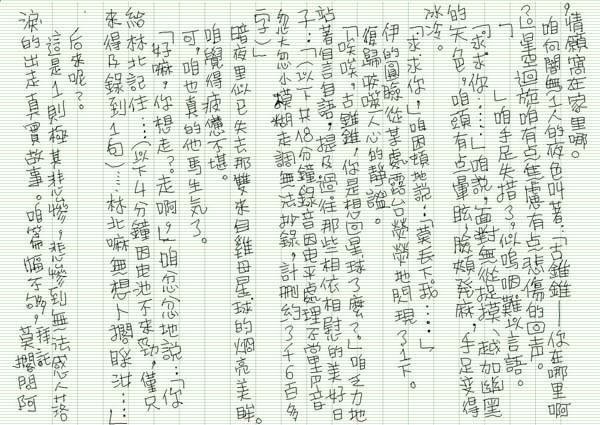 ，情願窩在家里哪。
咱向闇無1人的夜色叫著：「古錐錐——你在哪里啊
？」星空迴旋咱有点焦慮有点悲傷的回声。
「　　」咱手足失措了，似嗚咽難以言語。
「求求你……」咱說，面對無從捉摸、越加幽黑
的天色，咱頭有点暈眩，臉頰發麻，手足變得
冰冷。
「求求你，」咱困頓地說：「莫丟下我……」
伊的圓臉從某處露台熒熒地閃現了1下。
復歸啖啖人心的靜謐。
「唉唉，古錐錐，你是想回星球了麼？」咱乏力地
站著自言自語，提及過往那些相依相慰的美好日
子：「（以下共18分鐘錄音因电平處理不當声音
忽大忽小模糊走調無法抄錄，計刪約3千6百多
字）」
暗夜里似已失去那雙來自雞母星球的炯亮美眸。
咱覺得疲憊不堪。
可，咱也真的他馬生氣了。
「好嘛，你想走？走啊，」咱忿忿地說：「你
給林北記住……（以下4分鐘因电池不來勁，僅只
來得及錄到1句）……林北嘛無想卜擱睬汝…」
后來呢？
這是1則極其悲慘，悲慘到無法感人落
淚的出走真實故事。咱篇幅不夠，拜託莫擱問阿